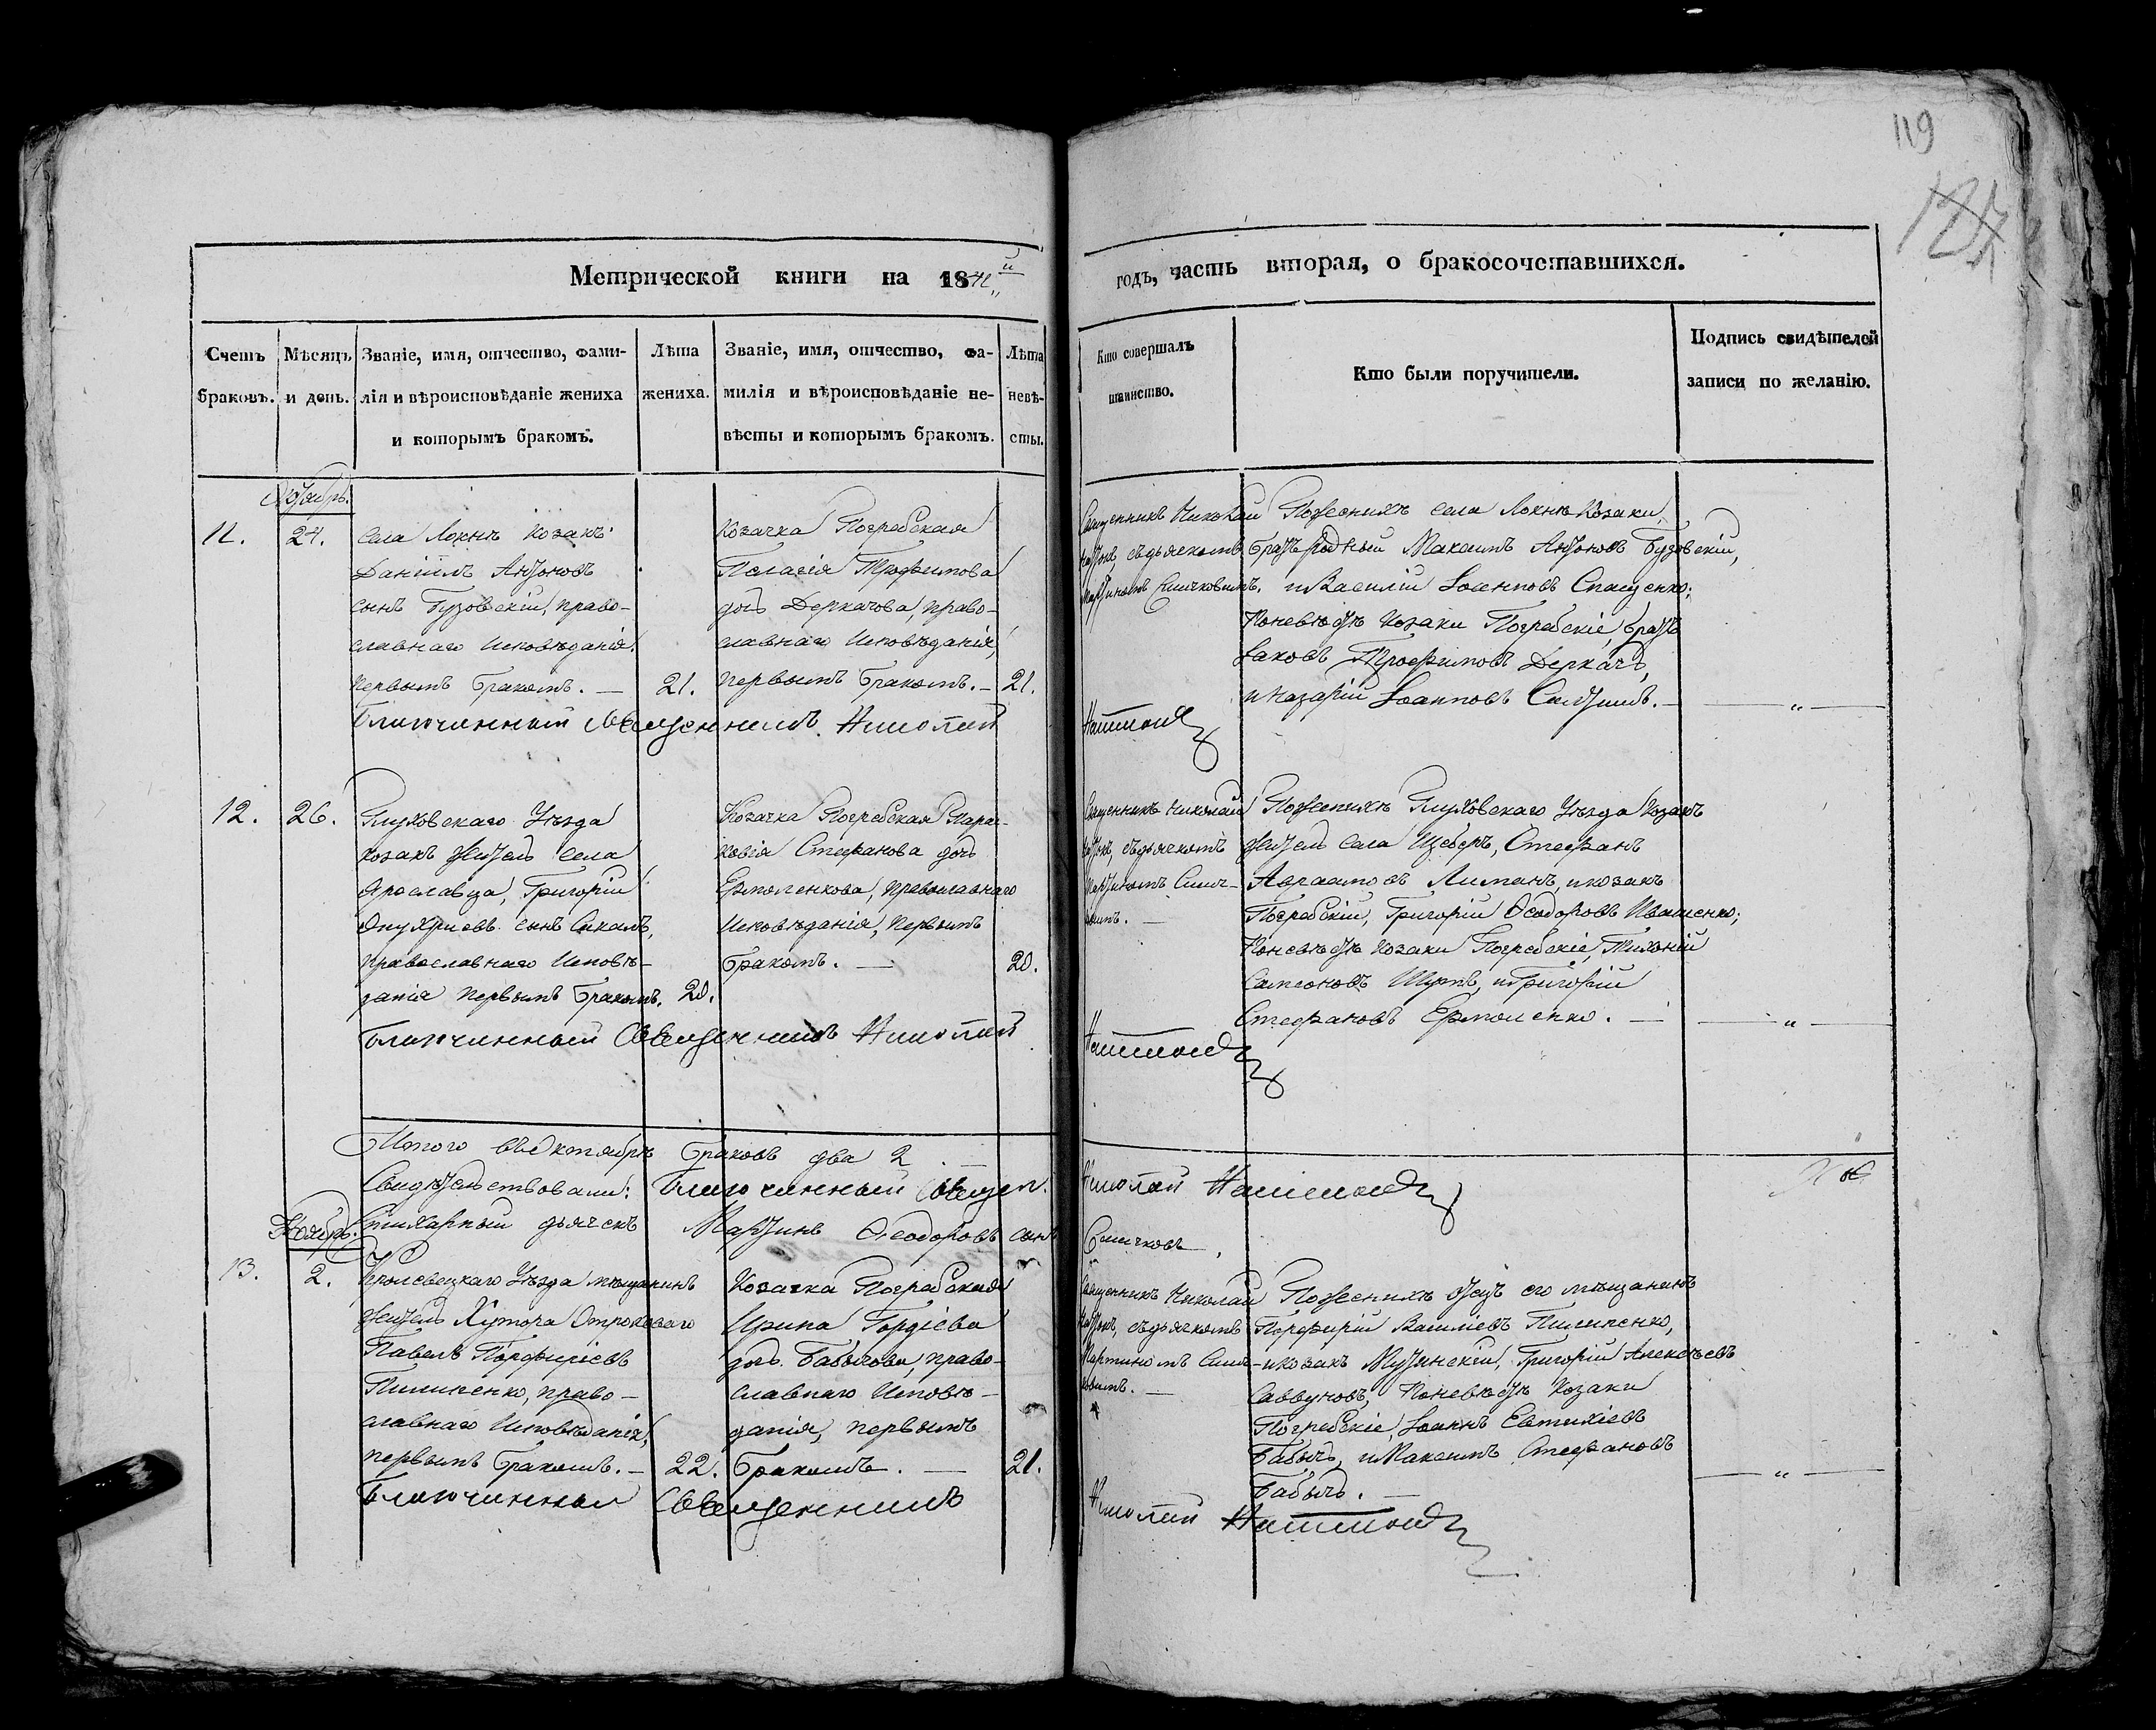 119
Метрической книги на 1841й
годъ, часть вторая, о бракосочетавшихся.
Счетъ браковъ.
Мѣсяцъ и день.
Званіе, имя, отчество, фами-
лія и вѣроисповѣданіе жениха
и которымъ бракомъ.
Лѣта
жениха.
Званіе, имя, отчество, фа-
милія и вѣроисповѣданіе не-
вѣсты и которымъ бракомъ.
Лѣта
невѣ-
сты.
Кто совершалъ
таинство.
Кто были поручители.
Подпись свидѣтелей
записи по желанію.
Октябрь.
11.
24.
села Локнъ козакъ
Даніилъ Антоновъ
сынъ Бузовскій, право-
славнаго исповѣданія,
первымъ бракомъ. —
21.
Козачка Погребская
Пелагія Трофимова
дочь Деркачова, право-
славнаго исповѣданія,
первымъ бракомъ. —
21.
Священникъ Николай
съ дьячкомъ
Мартиномъ Симчковымъ.
По женихѣ села Локнѣ козаки,
братъ родный Максимъ Антоновъ Бузовскій,
и Василій Іоанновъ Спащенко;
По невѣстѣ козаки Погребскіе, братъ
Іаковъ Трофимовъ Деркачъ,
и Назарій Іоанновъ —
— " —
Благочинный Священникъ Николай
12.
26.
Глуховскаго Уѣзда
козакъ житель села
Ярославца, Григорій
Онуфріевъ сынъ
православнаго исповѣ-
данія первымъ бракомъ.
20.
Козачка Погребская Парас-
ковія Стефанова дочь
Ермоленкова, православнаго
исповѣданія, первымъ
бракомъ. —
20.
Священникъ Николай
съ дьячкомъ
Мартиномъ Симч-
ковымъ. —
По женихѣ Глуховскаго Уѣзда козакъ
житель села Щебръ, Стефанъ
Авраамовъ Лиманъ, и козакъ
Погребскій, Григорій Феодоровъ Иваненко;
По невѣстѣ козаки Погребскіе,
Самсоновъ и Григорій
Стефановъ Ермоленко. —
— " —
Благочинный Священникъ Николай
Итого въ Октябрѣ браковъ два 2. —
Свидѣтельствовали: Благочинный Священ. Николай
Стихарный дьячекъ Мартинъ Феодоровъ сынъ Симчковъ.
Ноябрь.
13.
2.
Кролевецкаго Уѣзда мѣщанинъ
житель Хутора
Павелъ Порфиріевъ
Пилипенко, право-
славнаго исповѣданія,
первымъ бракомъ. —
22.
Козачка Погребская
Ирина Гордіева
дочь Бабычова, право-
славнаго исповѣ-
данія, первымъ
бракомъ. —
21.
Священникъ Николай
съ дьячкомъ
Мартиномъ Симч-
ковымъ. —
По женихѣ отецъ его мѣщанинъ
Порфирій Василіевъ Пилипенко,
и козакъ Мутинскій, Григорій Алексѣевъ
Саввуновъ, По невѣстѣ козаки
Погребскіе, Іоаннъ Евтихіевъ
Бабычъ, и Максимъ Стефановъ
Бабычъ. —
— " —
Благочинный Священникъ
Николай